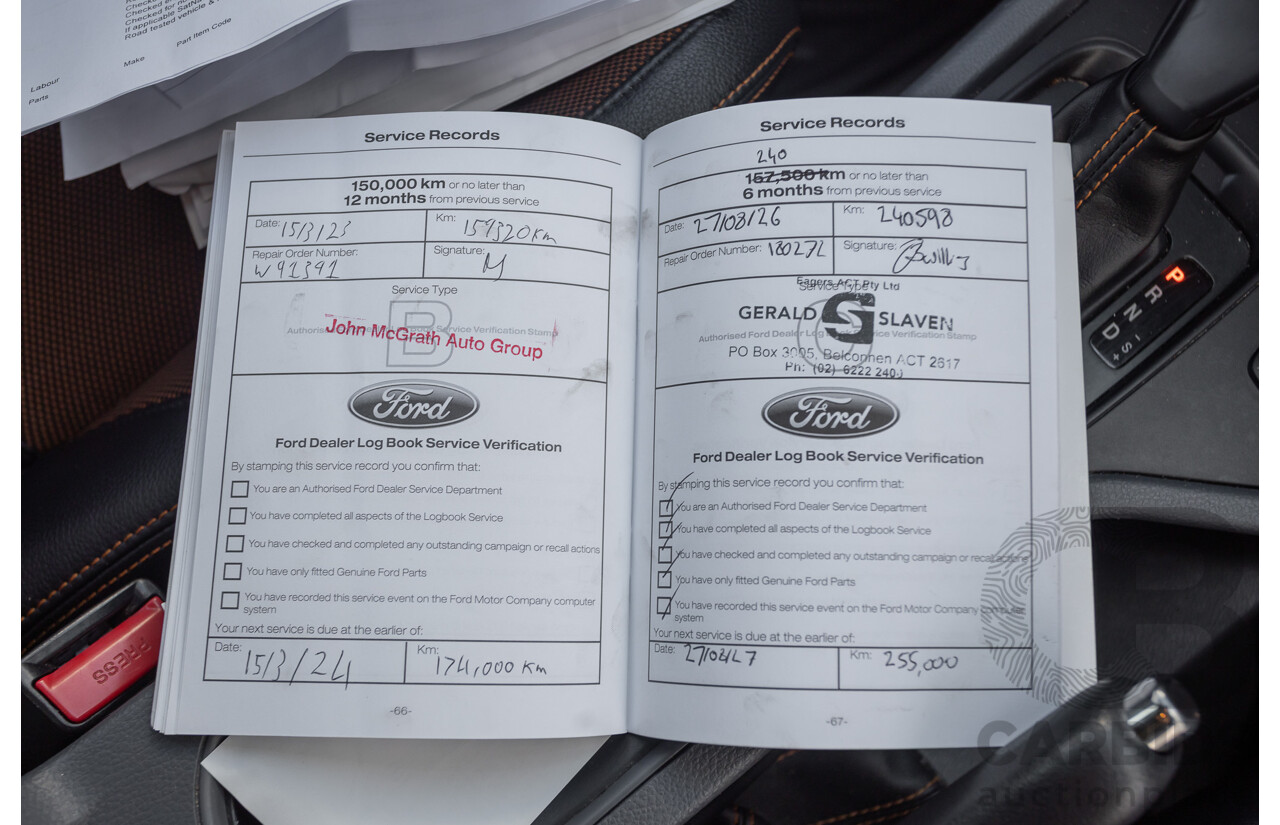 Checked for
If applicable SatNa
Road tested vehicle &
Make
Part Item Code
Labour
Parts
Service Records
150,000 km or no later than
12 months from previous service
Date: 15/3/23
Km: 159320 km
Repair Order Number:
W91391
Signature:
Service Type
B
Authorised Service Verification Stamp
John McGrath Auto Group
Ford
Ford Dealer Log Book Service Verification
By stamping this service record you confirm that:
You are an Authorised Ford Dealer Service Department
You have completed all aspects of the Logbook Service
You have checked and completed any outstanding campaign or recall actions
You have only fitted Genuine Ford Parts
You have recorded this service event on the Ford Motor Company computer
system
Your next service is due at the earlier of:
Date: 15/3/24
Km: 174,000 Km
-66-
Service Records
240
157,500 km or no later than
6 months from previous service
Date: 27/08/26
Km: 240598
Repair Order Number: 180272
Signature:
Eagers ACT Pty Ltd
Service Type
GERALD S SLAVEN
Authorised Ford Dealer Log Book Service Verification Stamp
PO Box 3095, Belconnen ACT 2617
Ph: (02) 6222 240
Ford
Ford Dealer Log Book Service Verification
By stamping this service record you confirm that:
You are an Authorised Ford Dealer Service Department
You have completed all aspects of the Logbook Service
You have checked and completed any outstanding campaign or recall actions
You have only fitted Genuine Ford Parts
You have recorded this service event on the Ford Motor Company computer
system
Your next service is due at the earlier of:
Date:
Km: 255,000
-67-
P
R
N
D
S
+
-
PRESS